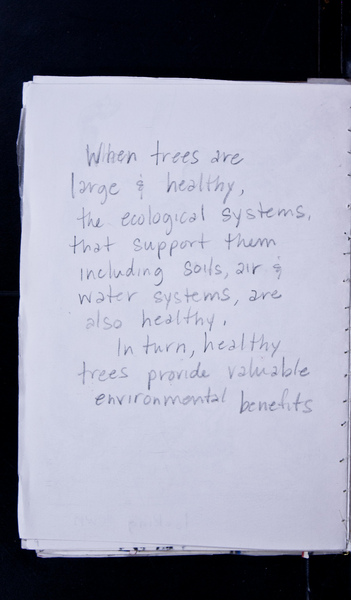 When trees are
large & healthy,
the ecological systems,
that support them
including soils, air &
water systems, are
also healthy.
In turn, healthy
trees provide valuable
environmental benefits